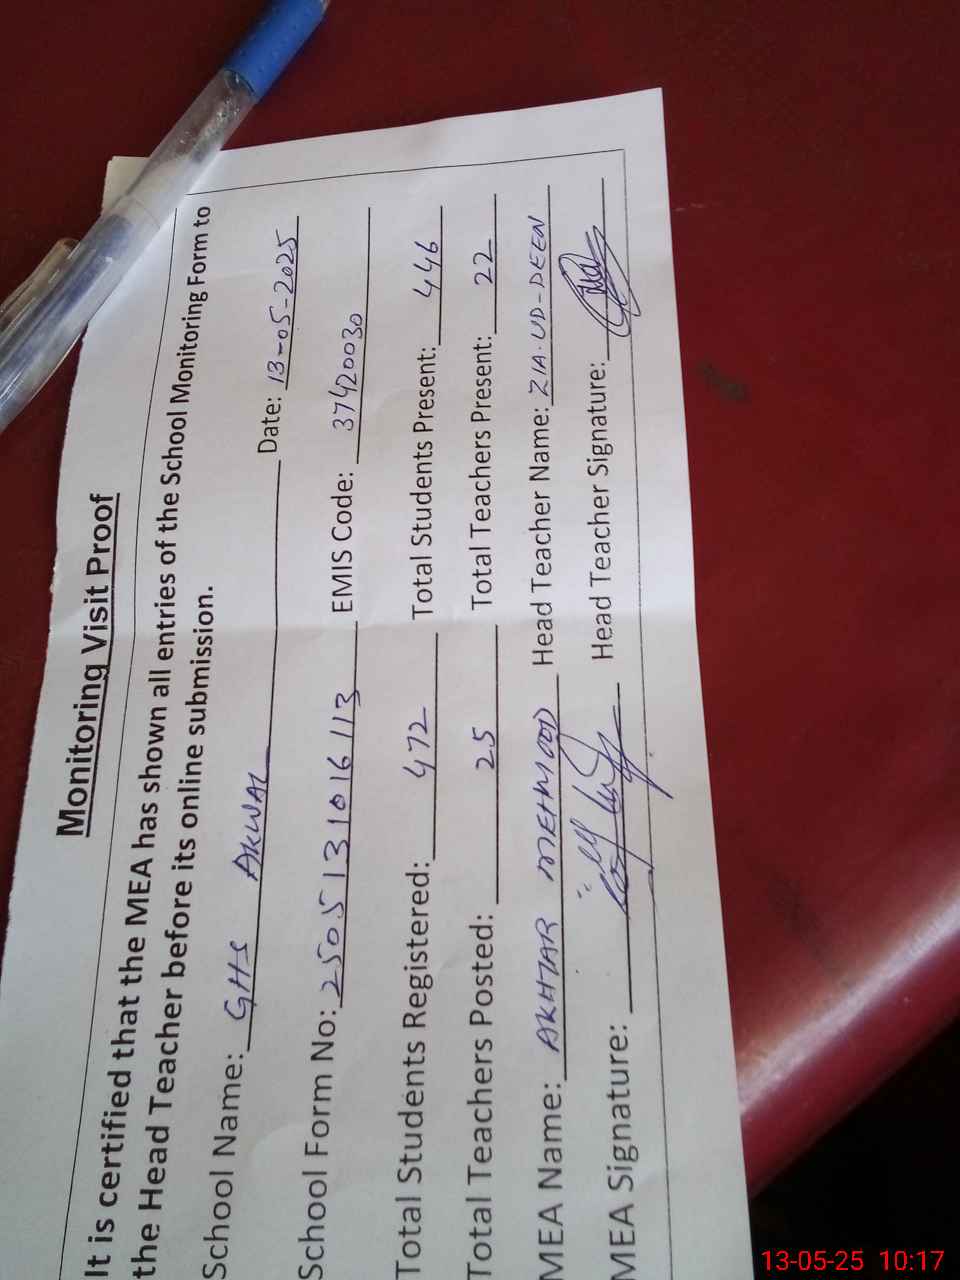 Monitoring Visit Proof
It is certified that the MEA has shown all entries of the School Monitoring Form to
the Head Teacher before its online submission.
School Name: GHS AKWAL Date: 13-05-2025
School Form No: 2505131016113 EMIS Code: 37420030
Total Students Registered: 472 Total Students Present: 446
Total Teachers Posted: 25 Total Teachers Present: 22
MEA Name: AKHTAR MEHMOOD Head Teacher Name: ZIA-UD-DEEN
MEA Signature: Head Teacher Signature:
13-05-25 10:17